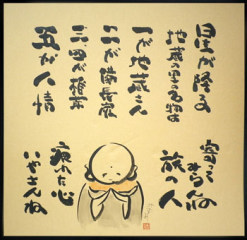 星が降る
地蔵の里の名物は
一が地蔵さん
二が備長炭
三、四が椎茸
五が人情
寄ってみな
旅の人
疲れた心
いやさんね